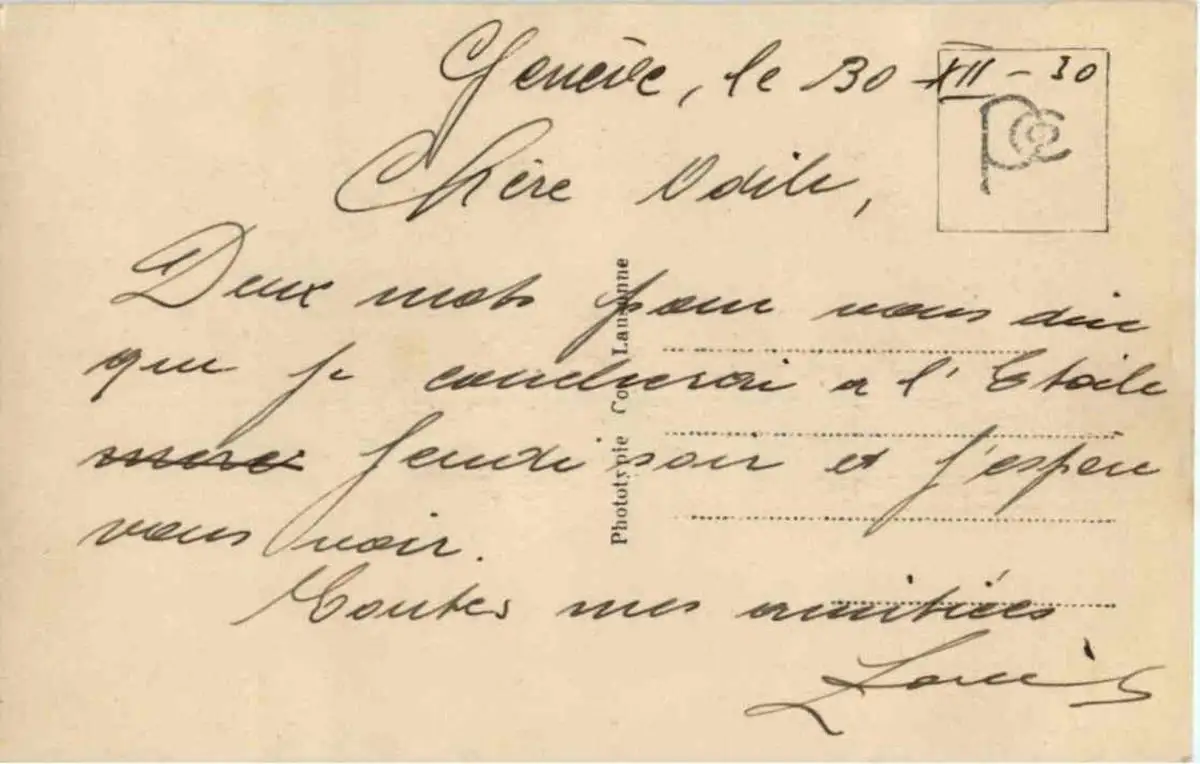 Genève, le 30 XII - 30
Pce
Chère Odile,
Deux mots pour vous dire
que je coucherai a l'Etoile
Jeudi soir et j'espère
vous voir.
Toutes mes amitiées
Louis
Phototypie Co Lausanne